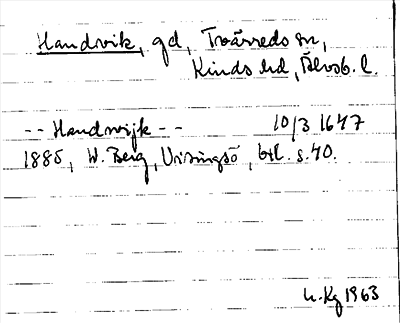 Handsvik, gd, Tvärreds sn,
Kinds hd, Älvsb. l.
-- Handwijk -- 10/3 1647
1885, W. Berg, Visingsö, btl. s. 40.
h. Kg 1963